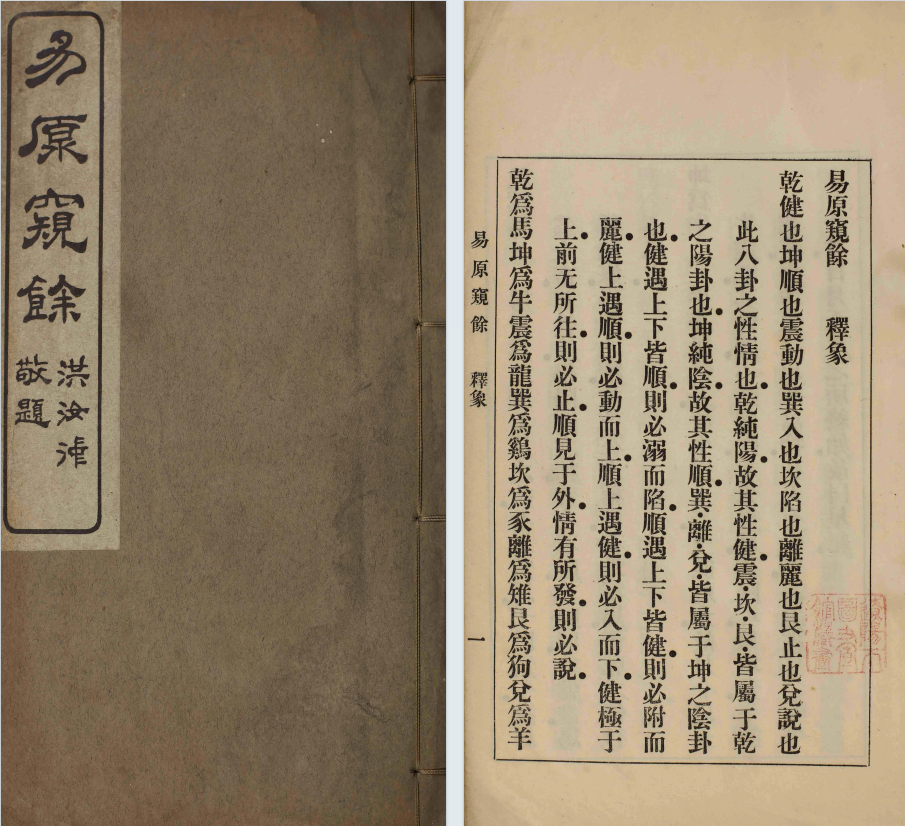 易原窺餘
洪汝沖
敬題
易原窺餘　釋象
乾健也坤順也震動也巽入也坎陷也離麗也艮止也兌說也
此八卦之性情也乾純陽故其性健震坎艮皆屬于乾
之陽卦也坤純陰故其性順巽離兌皆屬于坤之陰卦
也健遇上下皆順則必溺而陷順遇上下皆健則必附而
麗健上遇順則必動而上順上遇健則必入而下健極于
上前无所往則必止順見于外情有所發則必說
乾爲馬坤爲牛震爲龍巽爲鷄坎爲豕離爲雉艮爲狗兌爲羊
易原窺餘　釋象
一